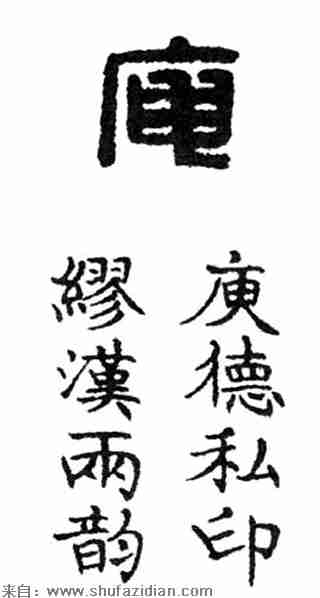 庾
庾德私印
繆漢兩韵
来自：www.shufazidian.com